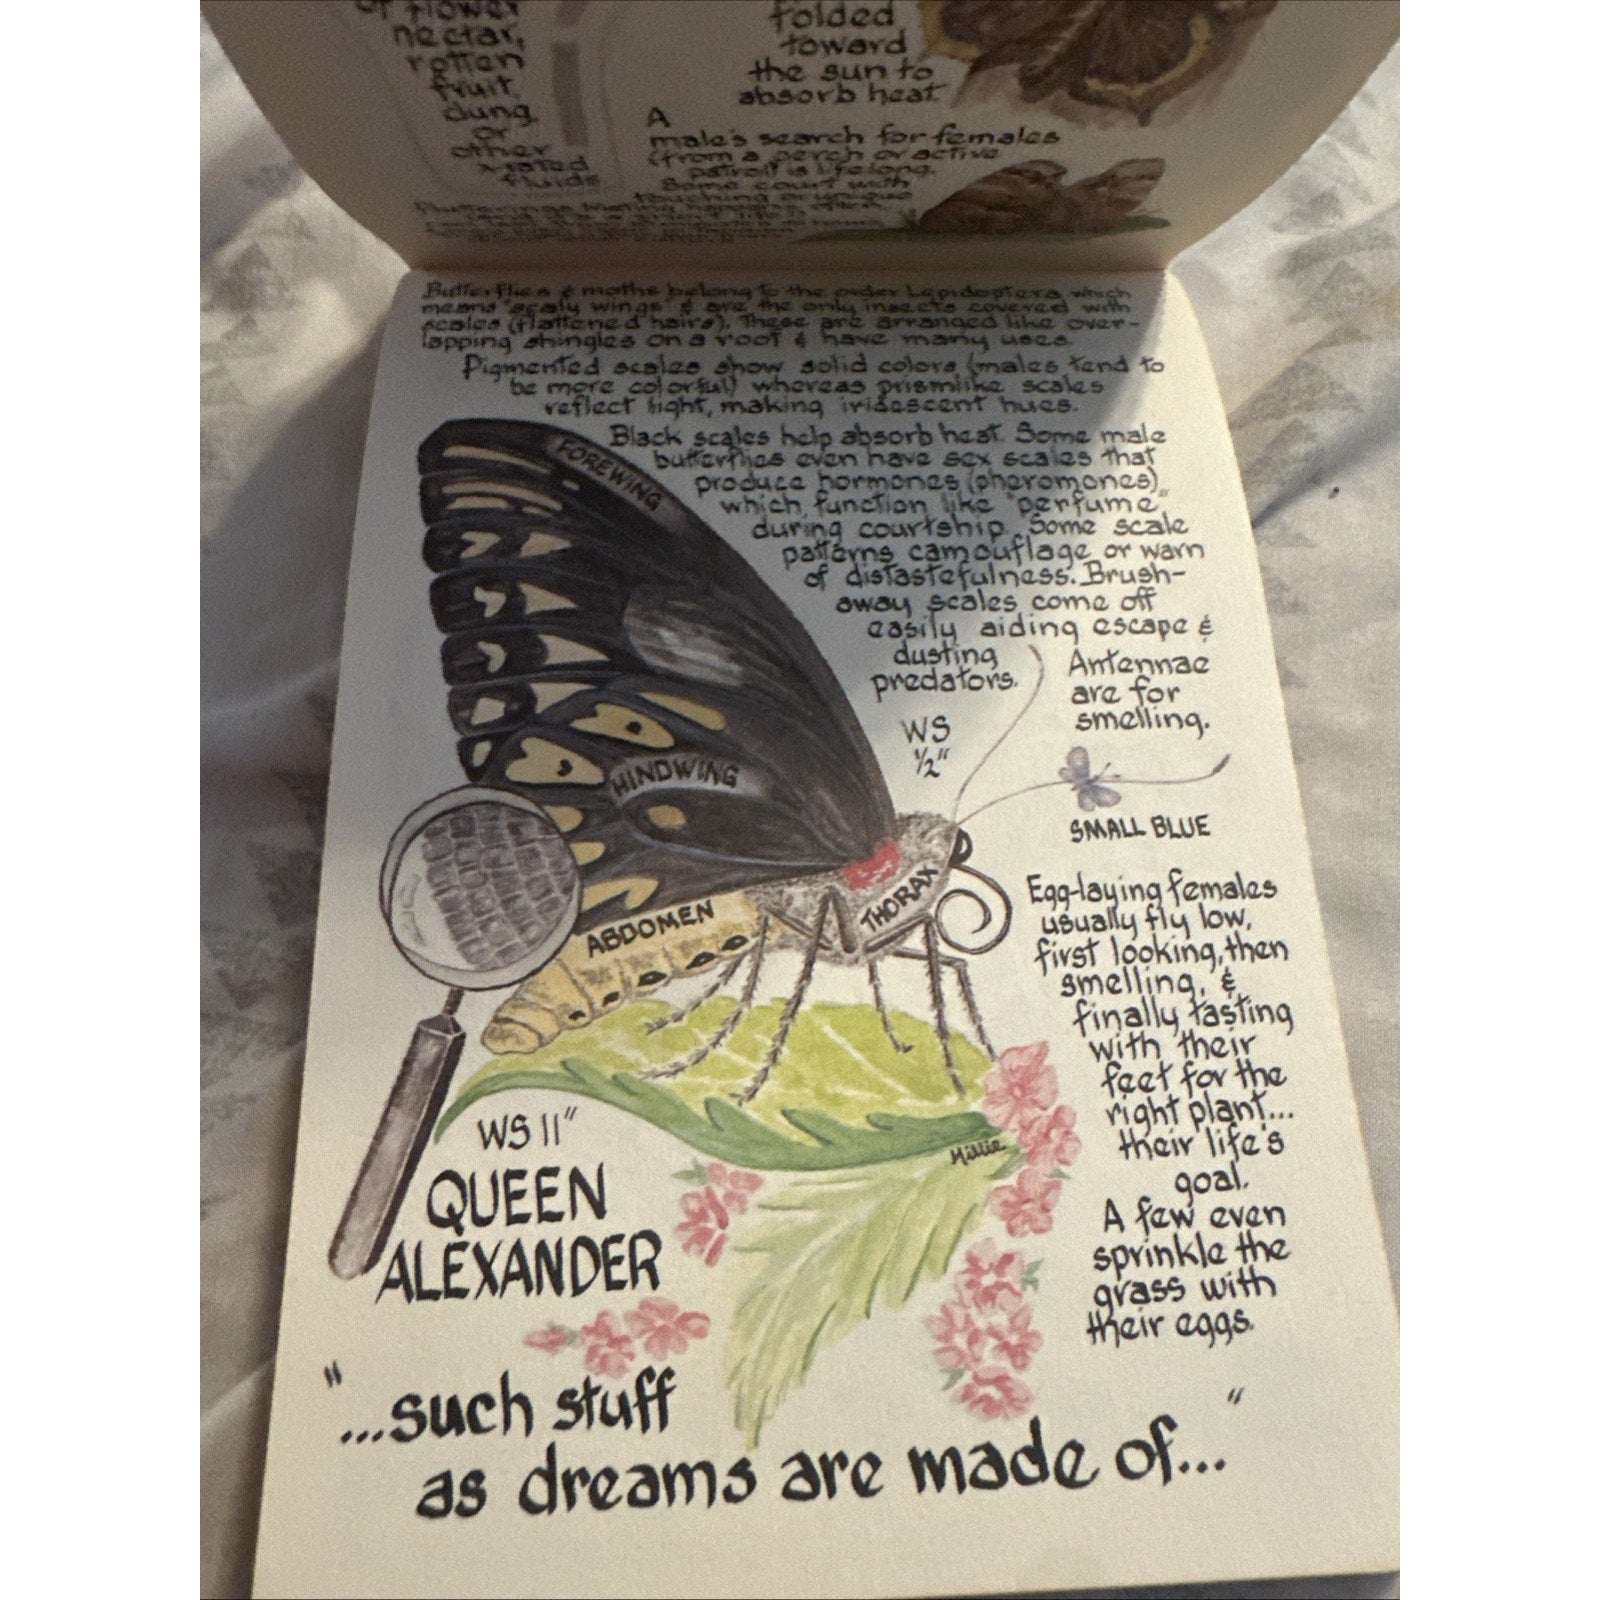 of flower
nectar,
rotten
fruit,
dung
or
other
fluids
folded
toward
the sun to
absorb heat.
A
male's search for females
(from a perch or active
patrol) is lifelong.
Some court with
touching or unique
Butterflies & moths belong to the order Lepidoptera which
means "scaly wings" & are the only insects covered with
scales (flattened hairs). These are arranged like over-
lapping shingles on a roof & have many uses.
Pigmented scales show solid colors (males tend to
be more colorful) whereas prismlike scales
reflect light, making iridescent hues.
Black scales help absorb heat. Some male
butterflies even have sex scales that
produce hormones (pheromones)
which function like "perfume"
during courtship. Some scale
patterns camouflage or warn
of distastefulness. Brush-
away scales come off
easily aiding escape &
dusting
predators.
FOREWING
HINDWING
ABDOMEN
THORAX
Antennae
are for
smelling.
WS
1/2"
SMALL BLUE
Egg-laying females
usually fly low,
first looking, then
smelling, &
finally tasting
with their
feet for the
right plant...
their life's
goal.
A few even
sprinkle the
grass with
their eggs.
Millie
WS 11"
QUEEN
ALEXANDER
"...such stuff
as dreams are made of..."